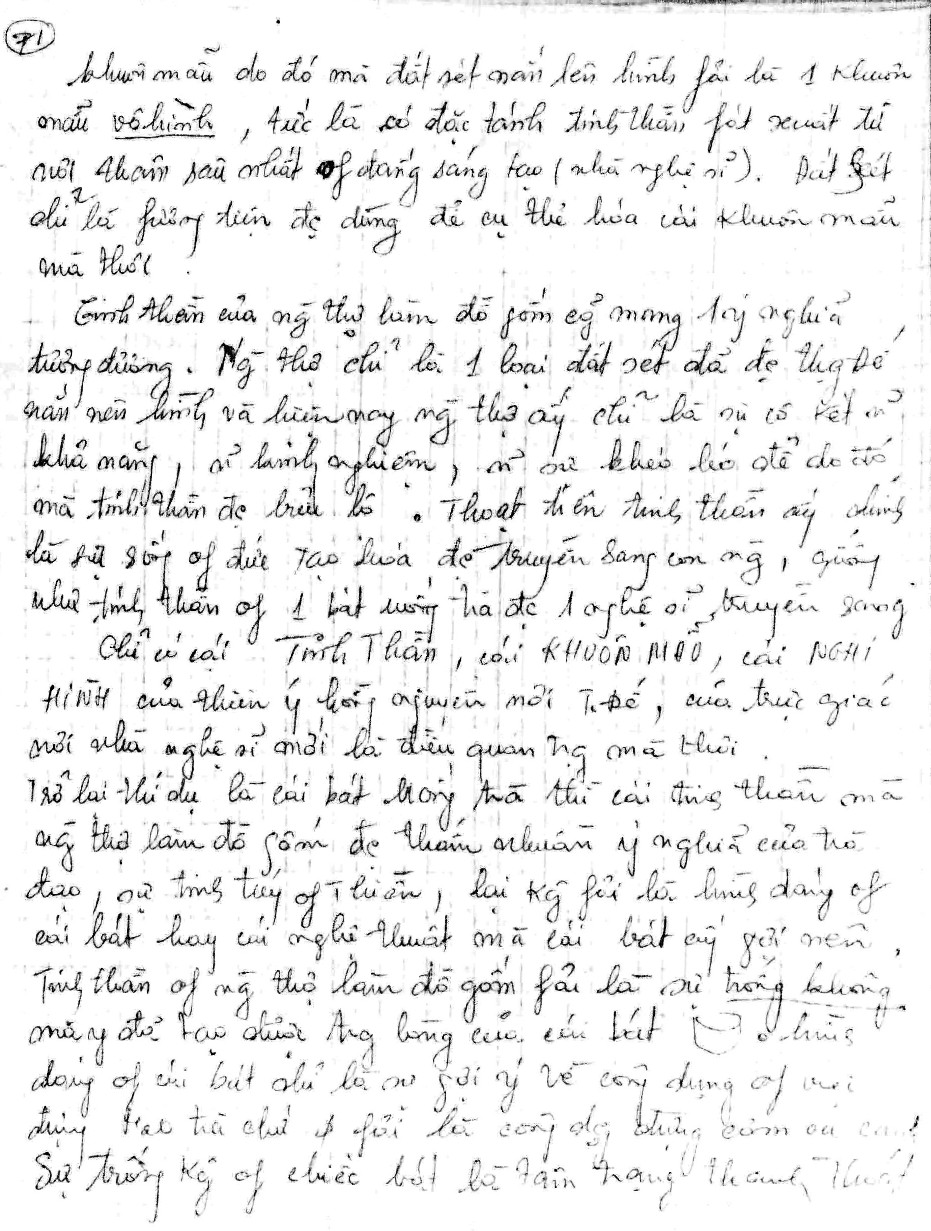 71
khuôn mẫu do đó mà đất sét nắn lên hình fải là 1 khuôn
mẫu vô hình, tức là có đặc tánh tinh thần fát xuất từ
nơi thâm sâu nhất of đấng sáng tạo (nhà nghệ sĩ). Đất sét
chỉ là fương tiện đc dùng để cụ thể hóa cái khuôn mẫu
mà thôi.
Tinh thần của ng̃ thợ làm đồ gốm cg̃ mang 1 ý nghĩa
tương đương. Ng̃ thợ chỉ là 1 loại đất sét đã đc Thg Đế
nắn nên hình và hiện nay ng̃ thợ ấy chỉ là sự cô kết
khả năng, kinh nghiệm, sự khéo léo để do đó
mà tinh thần đc biểu lộ. Thoạt tiên tinh thần ấy chính
là sự sống of đức Tạo hóa đc truyền sang con ng̃, giống
như tinh thần of 1 bát uống trà đc 1 nghệ sĩ truyền sang
Chỉ có cái Tinh Thần, cái KHUÔN MẪU, cái NGHI
HÌNH của thiên ý hồng nguyên nơi T. Đế, của trực giác
nơi nhà nghệ sĩ mới là điều quan tr̃g mà thôi.
Trở lại thí dụ là cái bát uống trà thì cái tinh thần mà
ng̃ thợ làm đồ gốm đc thấm nhuần ý nghĩa của trà
đạo, sự tinh túy of Thiền, lại kg̃ fải là hình dáng of
cái bát hay cái nghệ thuật mà cái bát ấy gợi nên.
Tinh thần of ng̃ thợ làm đồ gốm fải là sự trống không
mà y đã tạo được tr̃g lòng của cái bát hình
dáng of cái bát chỉ là sự gợi ý về công dụng of
đựng trà chứ fải là công dg̃ đựng cơm
Sự trống kg̃ of chiếc bát là tâm trạng thanh thoát